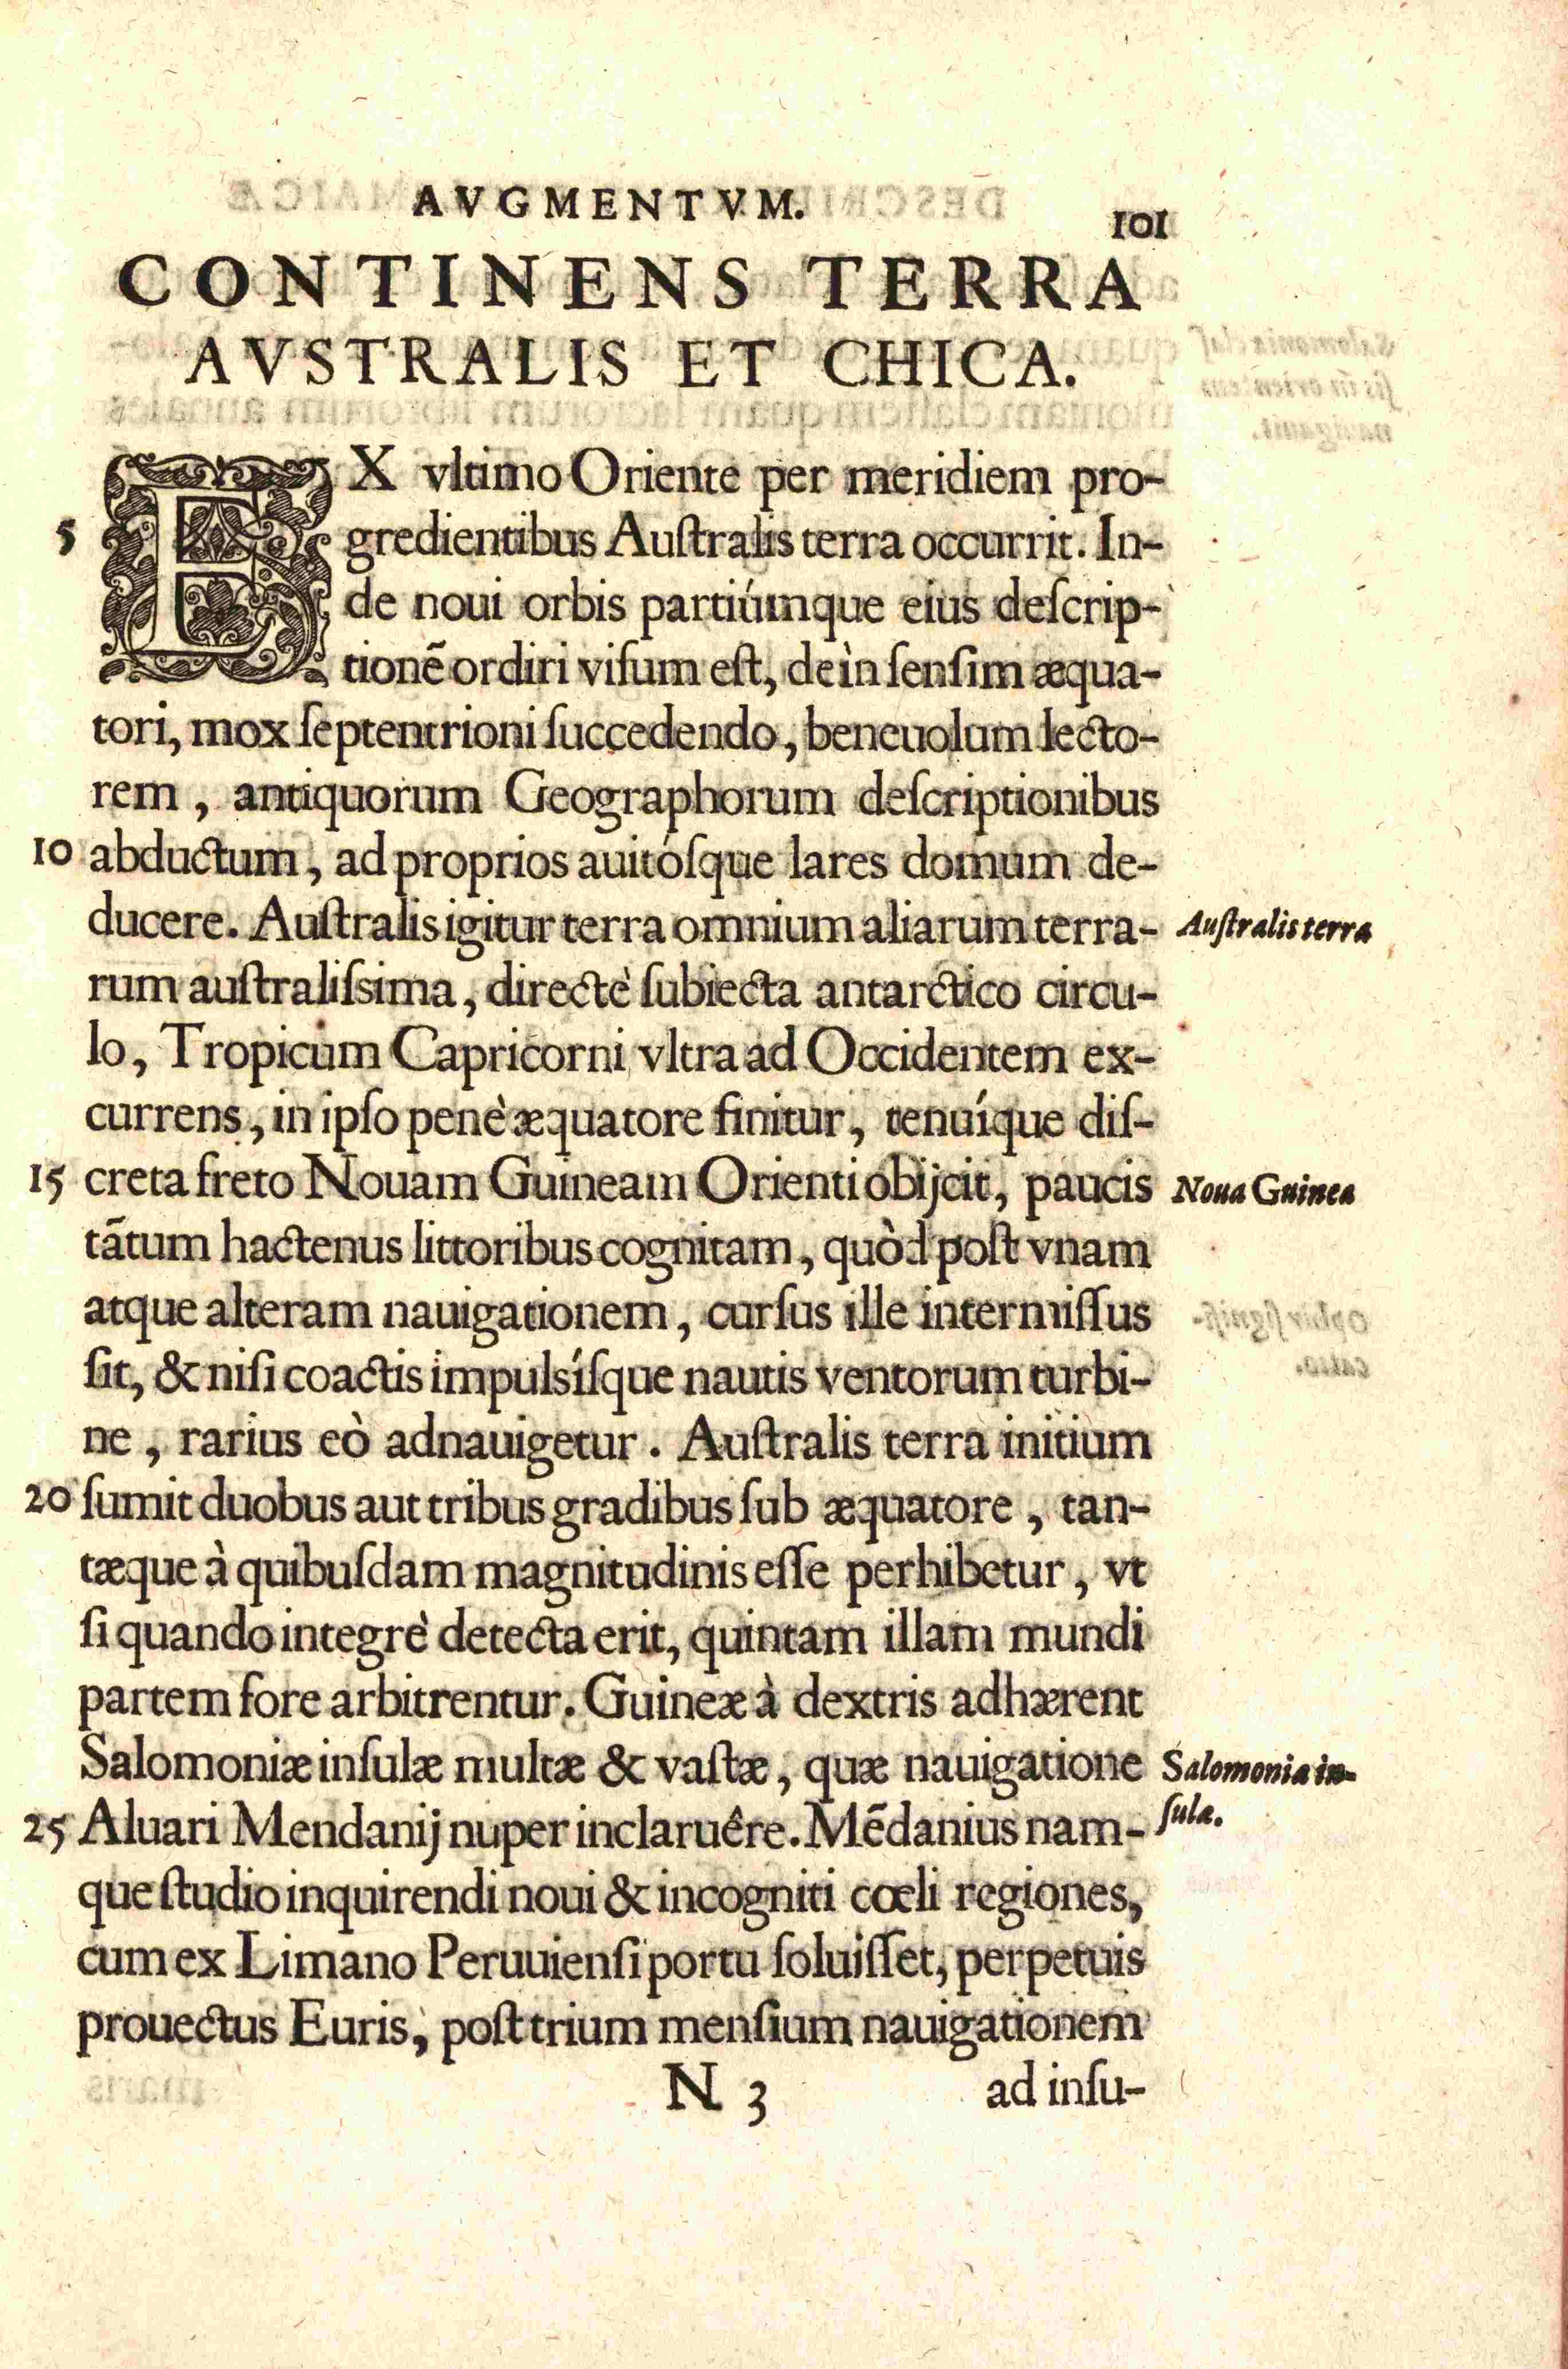 AVGMENTVM.
101
CONTINENS TERRA
AVSTRALIS ET CHICA.
EX vltimo Oriente per meridiem pro-
5 gredientibus Auſtralis terra occurrit. In-
de noui orbis partiúmque eius deſcrip-
tionẽ ordiri viſum eſt, deìn ſenſim æqua-
tori, mox ſeptentrioni ſuccedendo, beneuolum lecto-
rem, antiquorum Geographorum deſcriptionibus
10 abductum, ad proprios auitóſque lares domum de-
ducere. Auſtralis igitur terra omnium aliarum terra-
Auſtralis terra
rum auſtraliſsima, directè ſubiecta antarctico circu-
lo, Tropicum Capricorni vltra ad Occidentem ex-
currens, in ipſo penè æquatore finitur, tenuíque diſ-
15 creta freto Nouam Guineam Orienti obijcit, paucis
Noua Guinea
tãtum hactenus littoribus cognitam, quòd poſt vnam
atque alteram nauigationem, curſus ille intermiſſus
ſit, & niſi coactis impulsíſque nautis ventorum turbi-
ne, rarius eò adnauigetur. Auſtralis terra initium
20 ſumit duobus aut tribus gradibus ſub æquatore, tan-
tæque à quibuſdam magnitudinis eſſe perhibetur, vt
ſi quando integrè detecta erit, quintam illam mundi
partem fore arbitrentur. Guineæ à dextris adhærent
Salomoniæ inſulæ multæ & vaſtæ, quæ nauigatione
Salomoniæ in-
ſulæ.
25 Aluari Mendanij nuper inclaruêre. Mẽdanius nam-
que ſtudio inquirendi noui & incogniti cœli regiones,
cum ex Limano Peruuienſi portu ſoluiſſet, perpetuis
prouectus Euris, poſt trium menſium nauigationem
N 3
ad inſu-